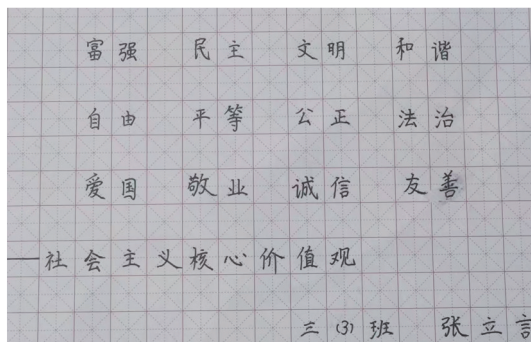 富强 民主 文明 和谐
自由 平等 公正 法治
爱国 敬业 诚信 友善
——社会主义核心价值观
三(3)班 张立言